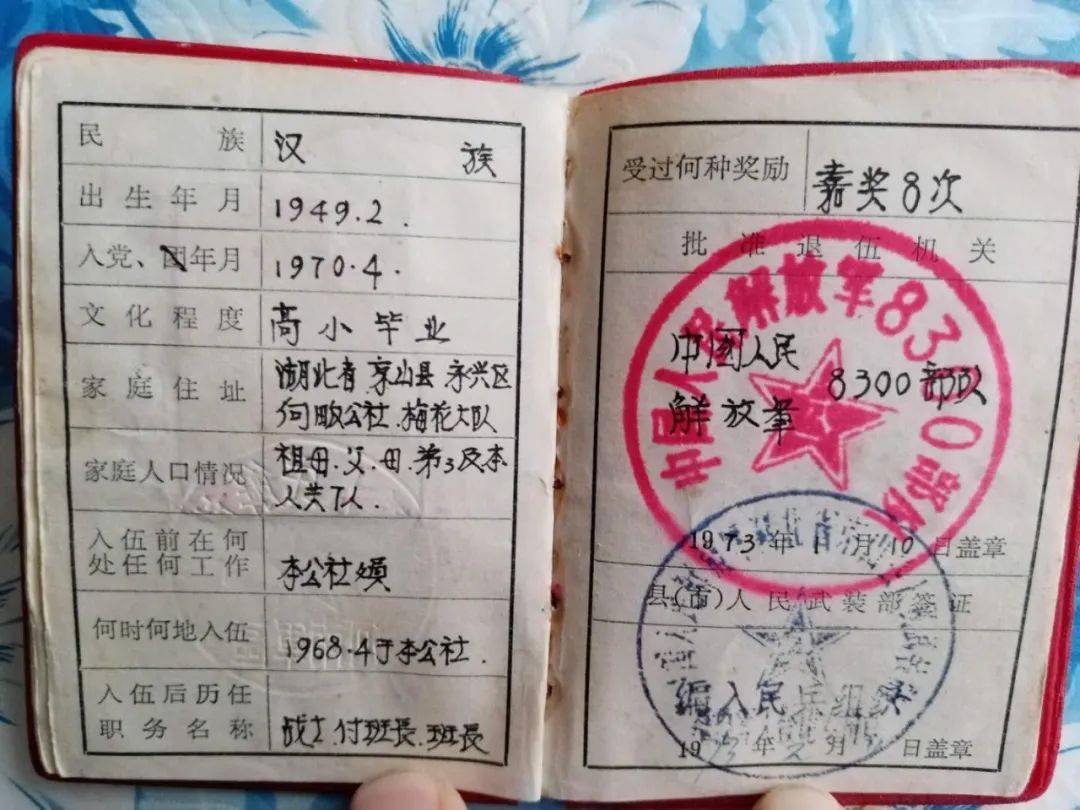 民族 汉族
出生年月 1949.2.
入党、团年月 1970.4.
文化程度 高小毕业
家庭住址 湖北省京山县永兴区
何畈公社.梅花大队
家庭人口情况 祖母.父.母.弟3及本
人共7人.
入伍前在何
处任何工作 本公社员
何时何地入伍 1968.4于本公社.
入伍后历任
职务名称 战士.付班長.班長
受过何种奖励 嘉奖8次
批准退伍机关
中国人民解放军8300部队
中国人民
解放军 8300部队
1973年1月10日盖章
县(市)人民武装部签证
编入民兵组织
1973年2月 日盖章